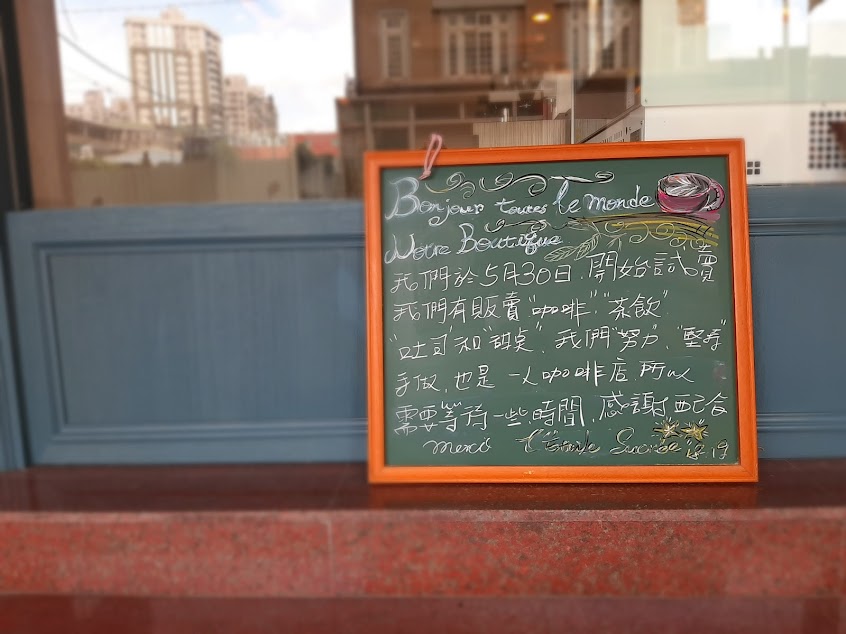 Bonjour toutes le monde
Notre Boutique
我們於5月30日，開始試賣
我們有販賣“咖啡”“茶飲”
“吐司”和“甜桌”，我們“努力”，“堅持”
手做，也是一人咖啡店，所以
需要等待一些時間，感謝配合
merci L'Etoile Sucrée '18-19